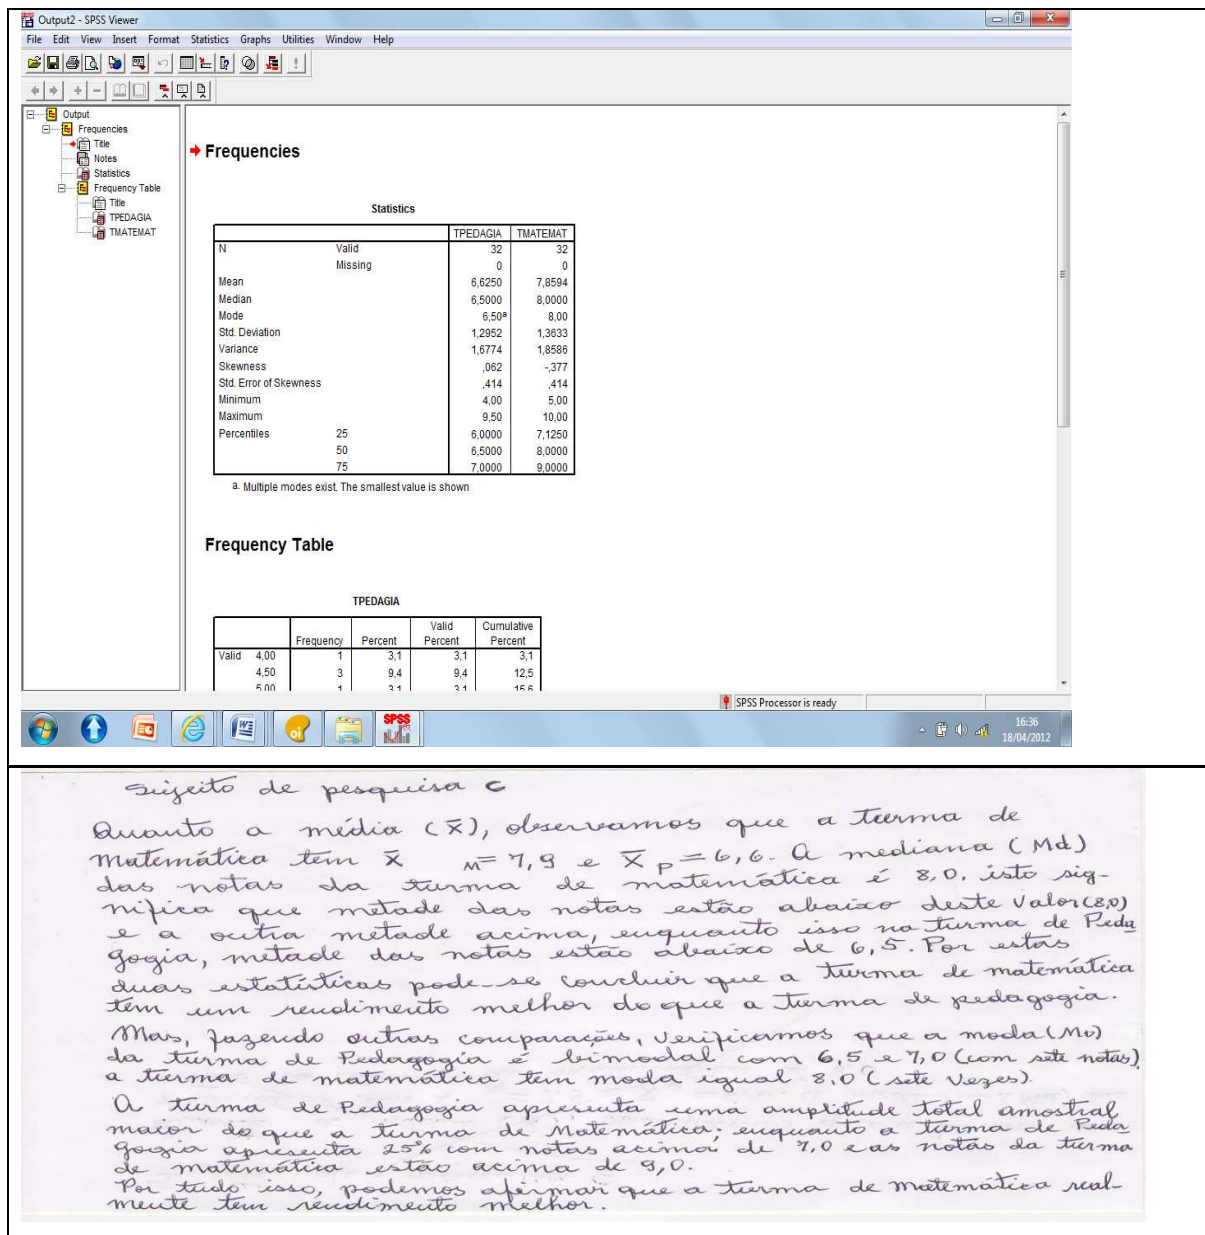 Output2 - SPSS Viewer
File Edit View Insert Format Statistics Graphs Utilities Window Help
Output
Frequencies
Title
Notes
Statistics
Frequency Table
Title
TPEDAGIA
TMATEMAT
Frequencies
Statistics
TPEDAGIA TMATEMAT
N Valid 32 32
Missing 0 0
Mean 6,6250 7,8594
Median 6,5000 8,0000
Mode 6,50a 8,00
Std. Deviation 1,2952 1,3633
Variance 1,6774 1,8586
Skewness ,062 -,377
Std. Error of Skewness ,414 ,414
Minimum 4,00 5,00
Maximum 9,50 10,00
Percentiles 25 6,0000 7,1250
50 6,5000 8,0000
75 7,0000 9,0000
a. Multiple modes exist. The smallest value is shown
Frequency Table
TPEDAGIA
Frequency Percent Valid Percent Cumulative Percent
Valid 4,00 1 3,1 3,1 3,1
4,50 3 9,4 9,4 12,5
5,00 1 3,1 3,1 15,6
SPSS Processor is ready
SPSS
16:36
18/04/2012
Sujeito de pesquisa C
Quanto a média (x̄), observamos que a turma de
Matemática tem x̄ M = 7,9 e x̄ P = 6,6. A mediana (Md)
das notas da turma de matemática é 8,0. isto sig-
nifica que metade das notas estão abaixo deste valor (8,0)
e a outra metade acima, enquanto isso na turma de Peda
gogia, metade das notas estão abaixo de 6,5. Por estas
duas estatísticas pode-se concluir que a turma de matemática
tem um rendimento melhor do que a turma de pedagogia.
Mas, fazendo outras comparações, verificamos que a moda (Mo)
da turma de Pedagogia é bimodal com 6,5 e 7,0 (com sete notas).
a turma de matemática tem moda igual 8,0 (sete vezes).
A turma de Pedagogia apresenta uma amplitude total amostral
maior do que a turma de Matemática; enquanto a turma de Peda
gogia apresenta 25% com notas acima de 7,0 e as notas da turma
de matemática estão acima de 9,0.
Por tudo isso, podemos afirmar que a turma de matemática real-
mente tem rendimento melhor.